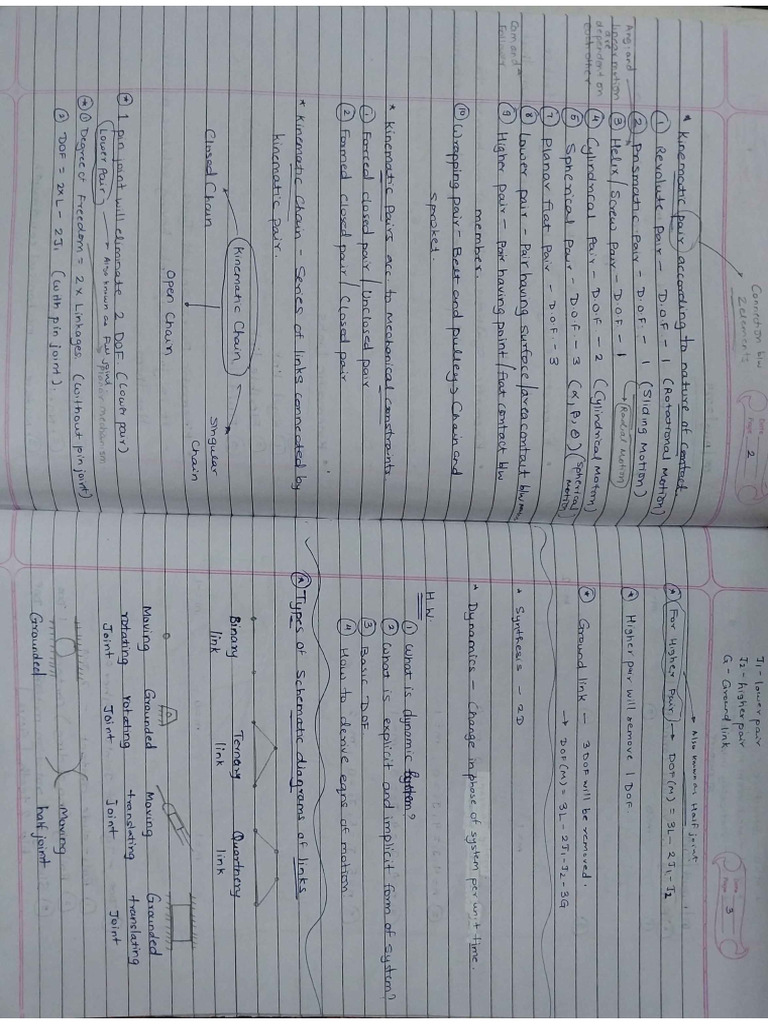 Connection b/w
2 elements
Date
Page 2
* Kinematic pair according to nature of contact
① Revolute pair - D.O.F - 1 (Rotational Motion)
② Prismatic Pair - D.O.F. - 1 (Sliding Motion)
③ Helix/Screw pair - D.O.F - 1
→ Radial Motion
Ang. and
linear motion
are
dependent on
each other
④ Cylindrical Pair - D.O.F - 2 (Cylindrical Motion)
⑤ Spherical Pair - D.O.F - 3 (α, β, θ) (Spherical Motion)
⑦ Planar flat Pair - D.O.F. - 3
⑧ Lower pair - Pair having surface/area contact b/w
⑨ Higher pair - Pair having point/ contact b/w
member.
Cam and
Follower
⑩ Wrapping pair - Belt and pulley, Chain and
sproket
* Kinematic Pairs acc. to Mechanical constraints
① Forced closed pair / Unclosed pair
② Formed closed pair / Closed pair
* Kinematic Chain - Series of links connected by
kinematic pair.
Kinematic Chain
Closed Chain
Open Chain
Singular
Chain
* 1 pin joint will eliminate 2 DOF (lower pair)
(Lower Pair) → Also known as Full joint
planar mechanism
* ① Degree of Freedom = 2 x Linkages (without pin joint)
② DOF = 2xL - 2J₁ (with pin joint).
J₁ - lower pair
J₂ - higher pair
G - Ground link
Date
Page 3
→ Also known as Half joint
* For Higher Pair → DOF(M) = 3L - 2J₁ - J₂
* Higher pair will remove 1 DOF.
* Ground link - 3 DOF will be removed.
→ DOF(M) = 3L - 2J₁ - J₂ - 3G
* Synthesis - 2D
* Dynamics - Change in phase of system per unit time.
H.W.
① What is dynamic system?
② What is explicit and implicit form of system?
③ Basic DOF
④ How to derive eqns of motion
* Types of Schematic diagrams of links
Binary
link
Ternary
link
Quartnery
link
Moving
rotating
Joint
Grounded
rotating
Joint
Moving
translating
Joint
Grounded
translating
Joint
Grounded
Moving
half joint